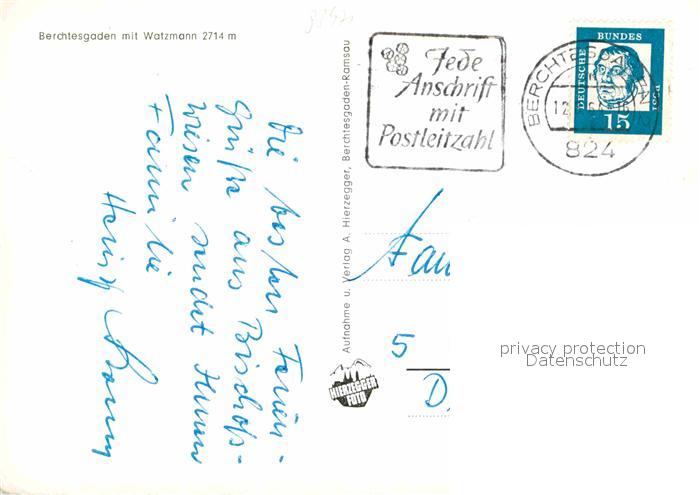 Berchtesgaden mit Watzmann 2714 m
Die besten Ferien-
grüße aus Bischofs-
wiesen sendet Ihnen
Familie
Aufnahme u. Verlag A. Hierzegger, Berchtesgaden-Ramsau
HIERZEGGER
FOTO
Jede
Anschrift
mit
Postleitzahl
BERCHTESGADEN
824
DEUTSCHE BUNDES
15
Fam
5
D
privacy protection
Datenschutz